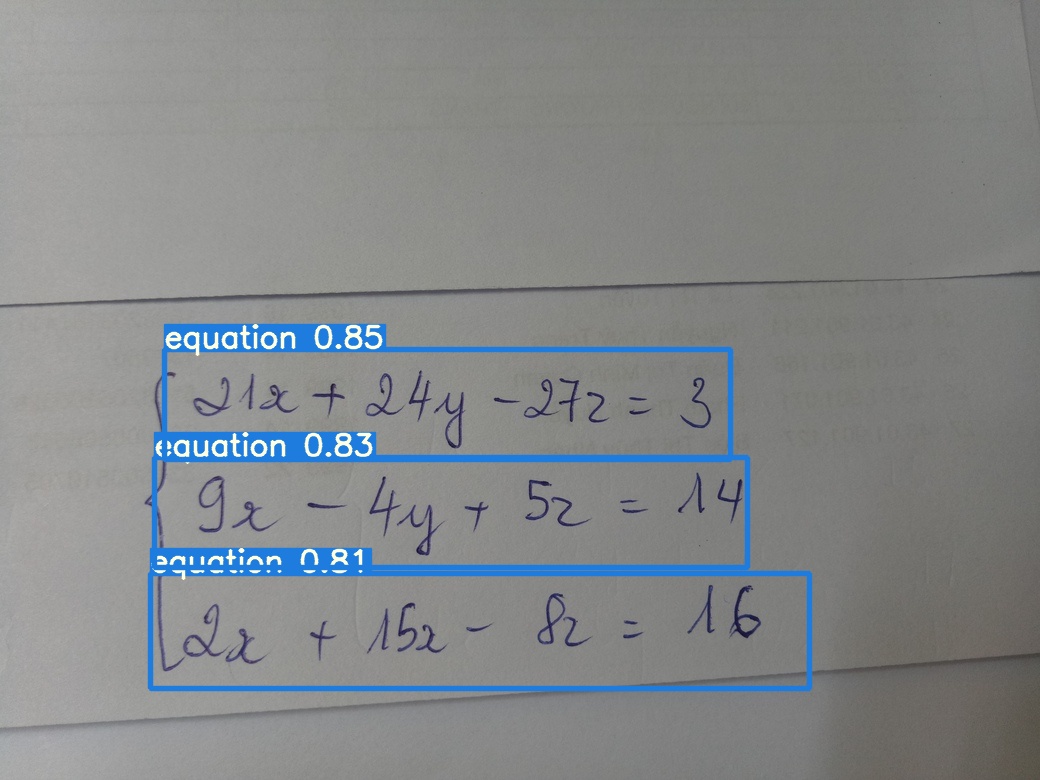 equation 0.85
21x + 24y - 27z = 3
equation 0.83
9x - 4y + 5z = 14
equation 0.81
2x + 15x - 8z = 16